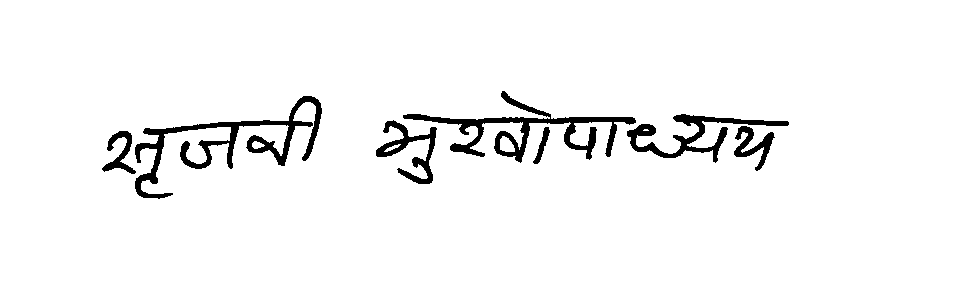 सृजनी मुखोपाध्यय